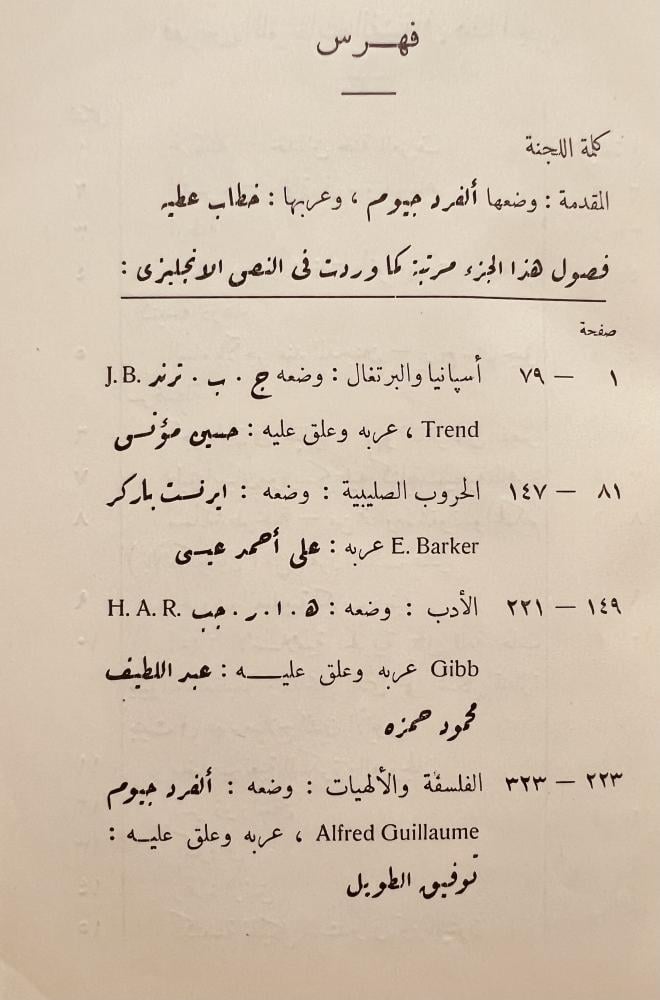 فهرس
كلمة اللجنة
المقدمة : وضعها ألفرد جيوم ، وعربها : خطاب عطيه
فصول هذا الجزء مرتبة كما وردت فى النص الانجليزى :
صفحة
١ — ٧٩ أسپانيا والبرتغال : وضعه ج . ب . ترند J. B.
Trend ، عربه وعلق عليه : حسين مؤنس
٨١ — ١٤٧ الحروب الصليبية : وضعه : ايرنست باركر
E. Barker عربه : على أحمد عيسى
١٤٩ — ٢٢١ الأدب : وضعه : ه . ا . ر . جب H. A. R.
Gibb عربه وعلق عليه : عبد اللطيف
محمود حمزه
٢٢٣ — ٣٢٣ الفلسفة والألهيات : وضعه : ألفرد جيوم
Alfred Guillaume ، عربه وعلق عليه :
توفيق الطويل